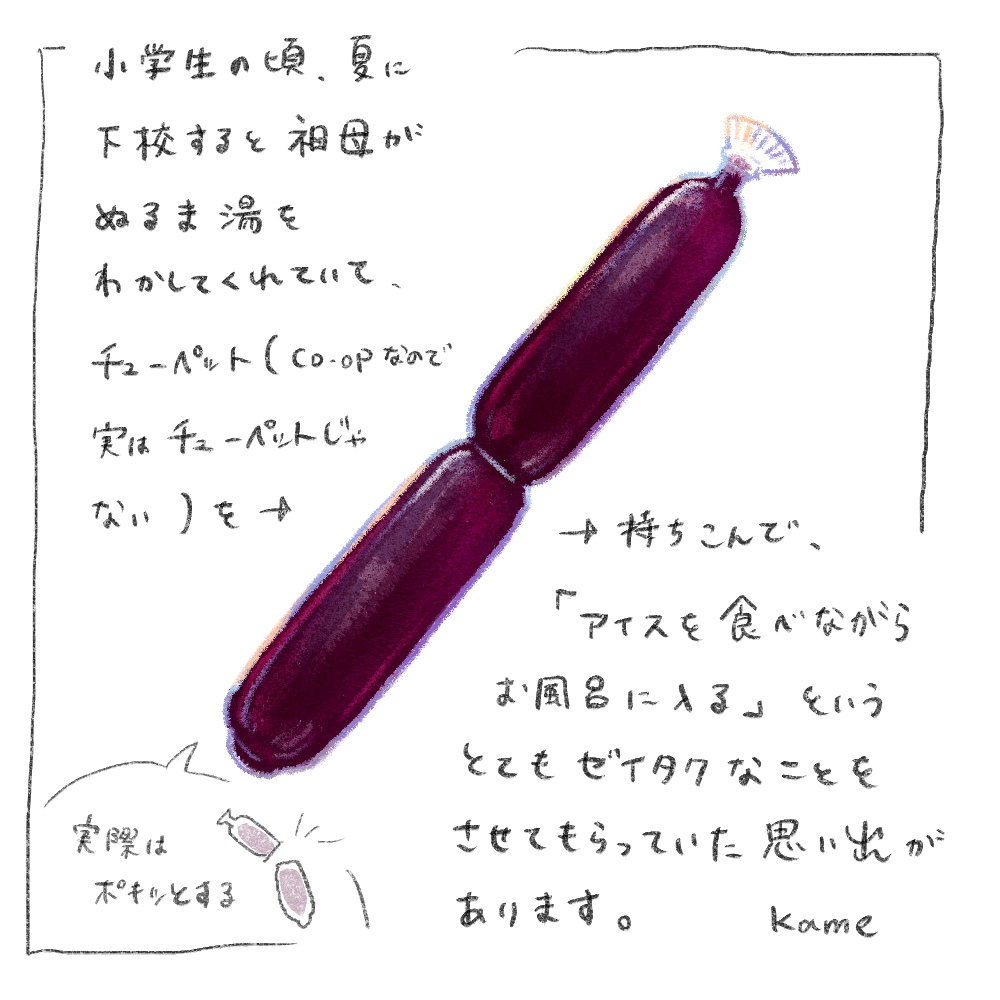 小学生の頃、夏に
下校すると祖母が
ぬるま湯を
わかしてくれていて、
チューペット(co-opなので
実はチューペットじゃ
ない)を→
→持ちこんで、
「アイスを食べながら
お風呂に入る」という
とてもゼイタクなことを
させてもらっていた思い出が
あります。 kame
実際は
ポキッとする